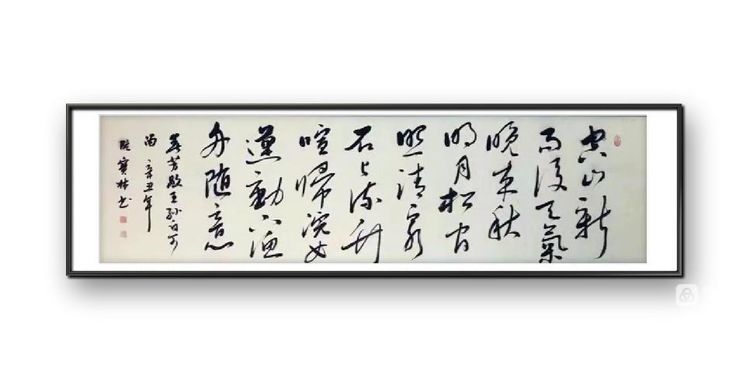 空山新
雨後天氣
晚來秋
明月松間
照清泉
石上流竹
喧歸浣女
蓮動下漁
舟隨意
春芳歇王孫自可
留 辛丑年
寶林書